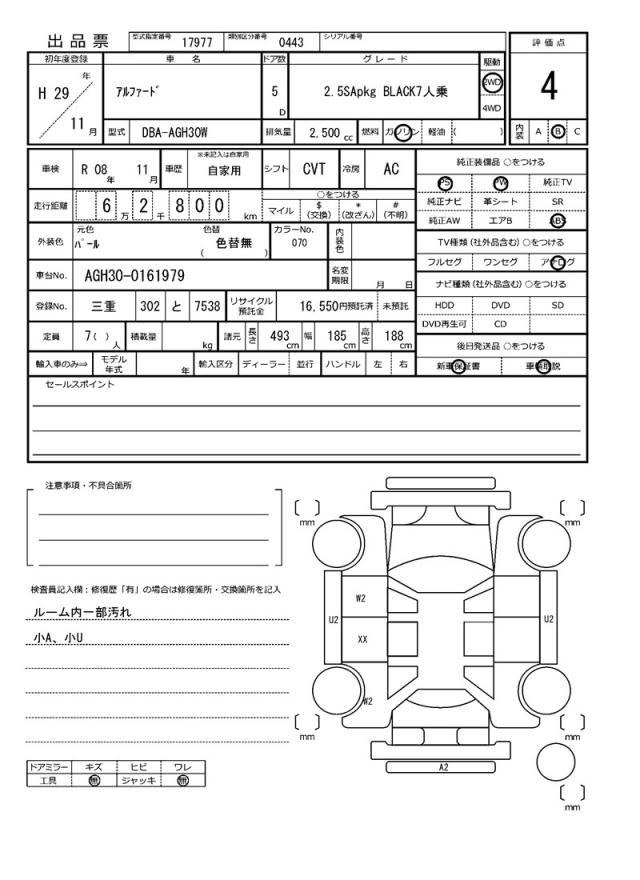 出品票 型式指定番号 17977 類別区分番号 0443 シリアル番号
評価点
4
内装 A B C
初年度登録 車名 ドア数 グレード 駆動
H 29 年 11 月 アルファード 5 D 2.5SApkg BLACK7人乗 2WD 4WD
型式 DBA-AGH30W 排気量 2,500 cc 燃料 ガソリン 軽油 ( )
車検 R 08 年 11 月 車歴 ※未記入は自家用 自家用 シフト CVT 冷房 AC
走行距離 6 万 2 千 8 0 0 km ○をつける マイル $ (交換) * (改ざん) # (不明)
外装色 元色 パール 色替 ( 色替無 ) カラーNo. 070 内装色
車台No. AGH30-0161979 名変期限 月 日
登録No. 三重 302 と 7538 リサイクル預託金 16,550円預託済 未預託
定員 7 ( ) 人 積載量 kg 諸元 長さ 493 cm 幅 185 cm 高さ 188 cm
輸入車のみ⇒ モデル年式 年 輸入区分 ディーラー 並行 ハンドル 左 右
純正装備品 ○をつける
PS PW 純正TV
純正ナビ 革シート SR
純正AW エアB ABS
TV種類 (社外品含む) ○をつける
フルセグ ワンセグ アナログ
ナビ種類 (社外品含む) ○をつける
HDD DVD SD
DVD再生可 CD
後日発送品 ○をつける
新車保証書 車輌取説
セールスポイント
注意事項・不具合箇所
検査員記入欄：修復歴「有」の場合は修復箇所・交換箇所を記入
ルーム内一部汚れ
小A、小U
ドアミラー キズ ヒビ ワレ
工具 無 ジャッキ 無
mm mm
W2
U2 U2
XX
W2
mm mm
A2
mm